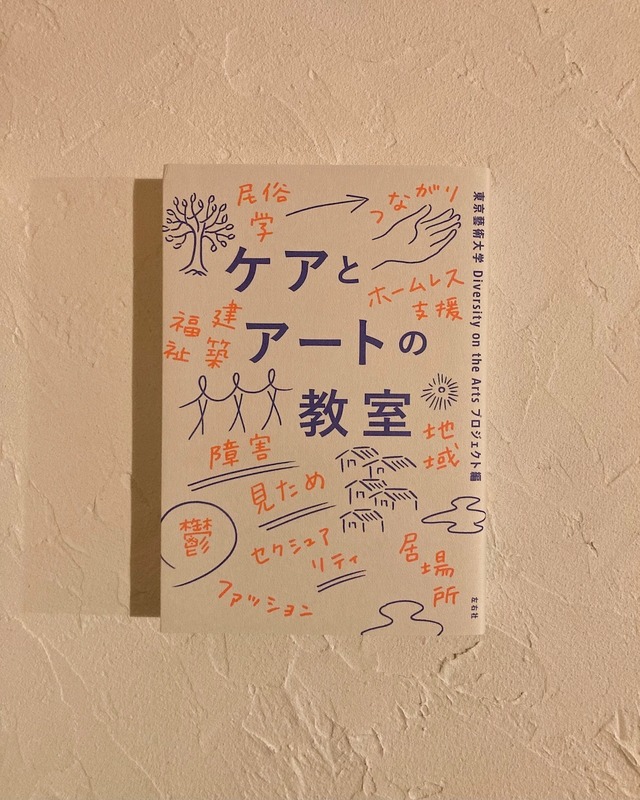 民俗
学
つながり
ケアと
ホームレス
支援
建
築
福
祉
アートの
教室
地
域
障害
見ため
鬱
セクシュア
リティ
居
場
所
ファッション
東京藝術大学 Diversity on the Arts プロジェクト 編
左右社